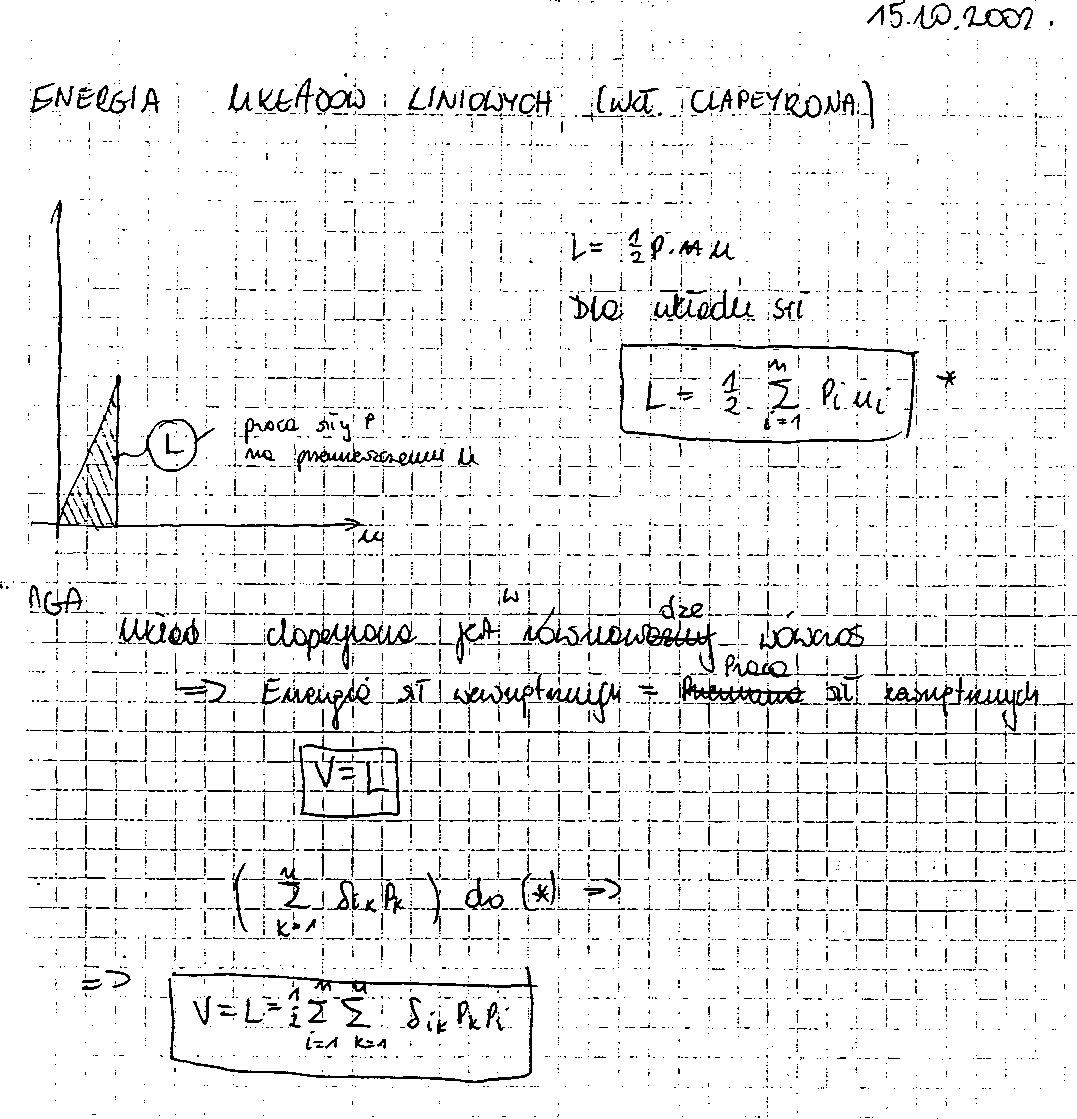 15.10.2002.
ENERGIA UKŁADÓW LINIOWYCH (UKŁ. CLAPEYRONA)
L = 1/2 P · u
Dla układu sił
L = 1/2 Σ_{i=1}^{n} P_i u_i *
L praca siły P
na przemieszczeniu u
u
Układ clapeyrona jest w równowadze wówczas
=> Energia sił wewnętrznych = Praca sił zewnętrznych
V = L
( Σ_{k=1}^{n} δ_{ik} P_k ) do (*) =>
=> V = L = 1/2 Σ_{i=1}^{n} Σ_{k=1}^{n} δ_{ik} P_k P_i